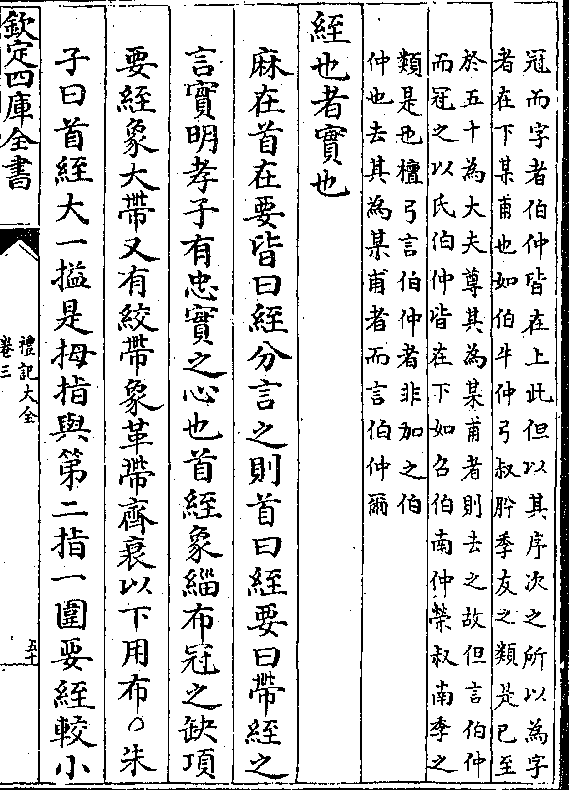 冠而字者伯仲皆在上此但以其序次之所以為字
者在下某甫也如伯牛仲弓叔肸季友之類是已至
於五十為大夫尊其為某甫者則去之故但言伯仲
而冠之以氏伯仲皆在下如召伯南仲榮叔南季之
類是也檀弓言伯仲者非加之伯
仲也去其為某甫者而言伯仲爾
絰也者實也
麻在首在要皆曰絰分言之則首曰絰要曰帶絰之
言實明孝子有忠實之心也首絰象緇布冠之缺項
要絰象大帶又有絞帶象革帶齊衰以下用布○朱
子曰首絰大一搤是拇指與第二指一圍要絰較小
欽定四庫全書
禮記大全
卷三
五十